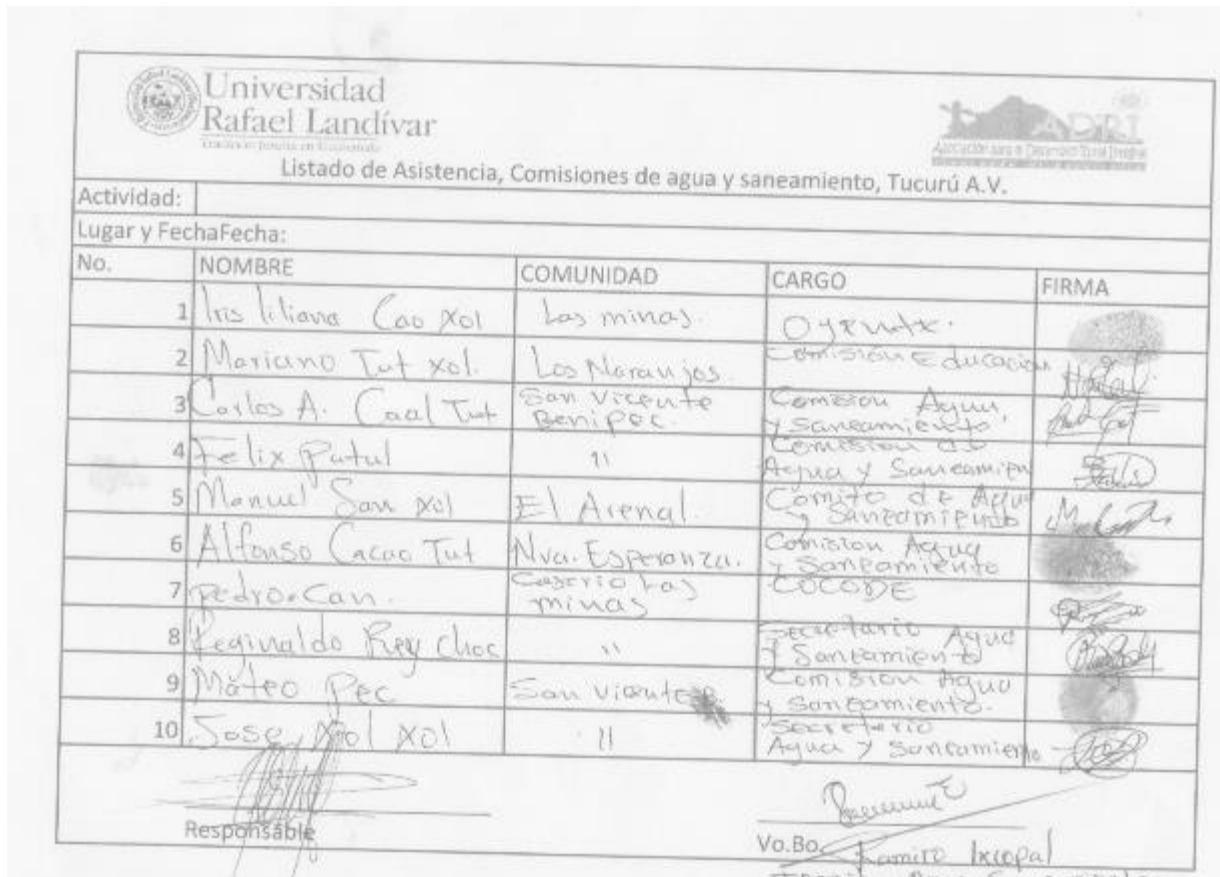 Universidad
Rafael Landívar
ADRI
Listado de Asistencia, Comisiones de agua y saneamiento, Tucurú A.V.
Actividad:
Lugar y FechaFecha:
No. NOMBRE COMUNIDAD CARGO FIRMA
1 Iris liliana Cao Xol Las minas. Oyente.
2 Mariano Tut xol. Los Naranjos. Comisión Educación
3 Carlos A. Caal Tut San Vicente Benipec. Comision Agua, y Saneamiento
4 Felix Putul " Comision de Agua y Saneamien
5 Manuel San Xol El Arenal. Comite de Agua y Saneamiento
6 Alfonso Cacao Tut Nva. Esperanza. Comision Agua y Saneamiento
7 pedro Can. Caserio Las minas COCODE
8 Reginaldo Rey Choc " Secretario Agua y Saneamiento
9 Mateo Pec San Vicente Comision Agua y Saneamiento.
10 Jose Xol Xol " Secretario Agua y Saneamiento
Responsable
Vo.Bo. Ramiro Ixcopal